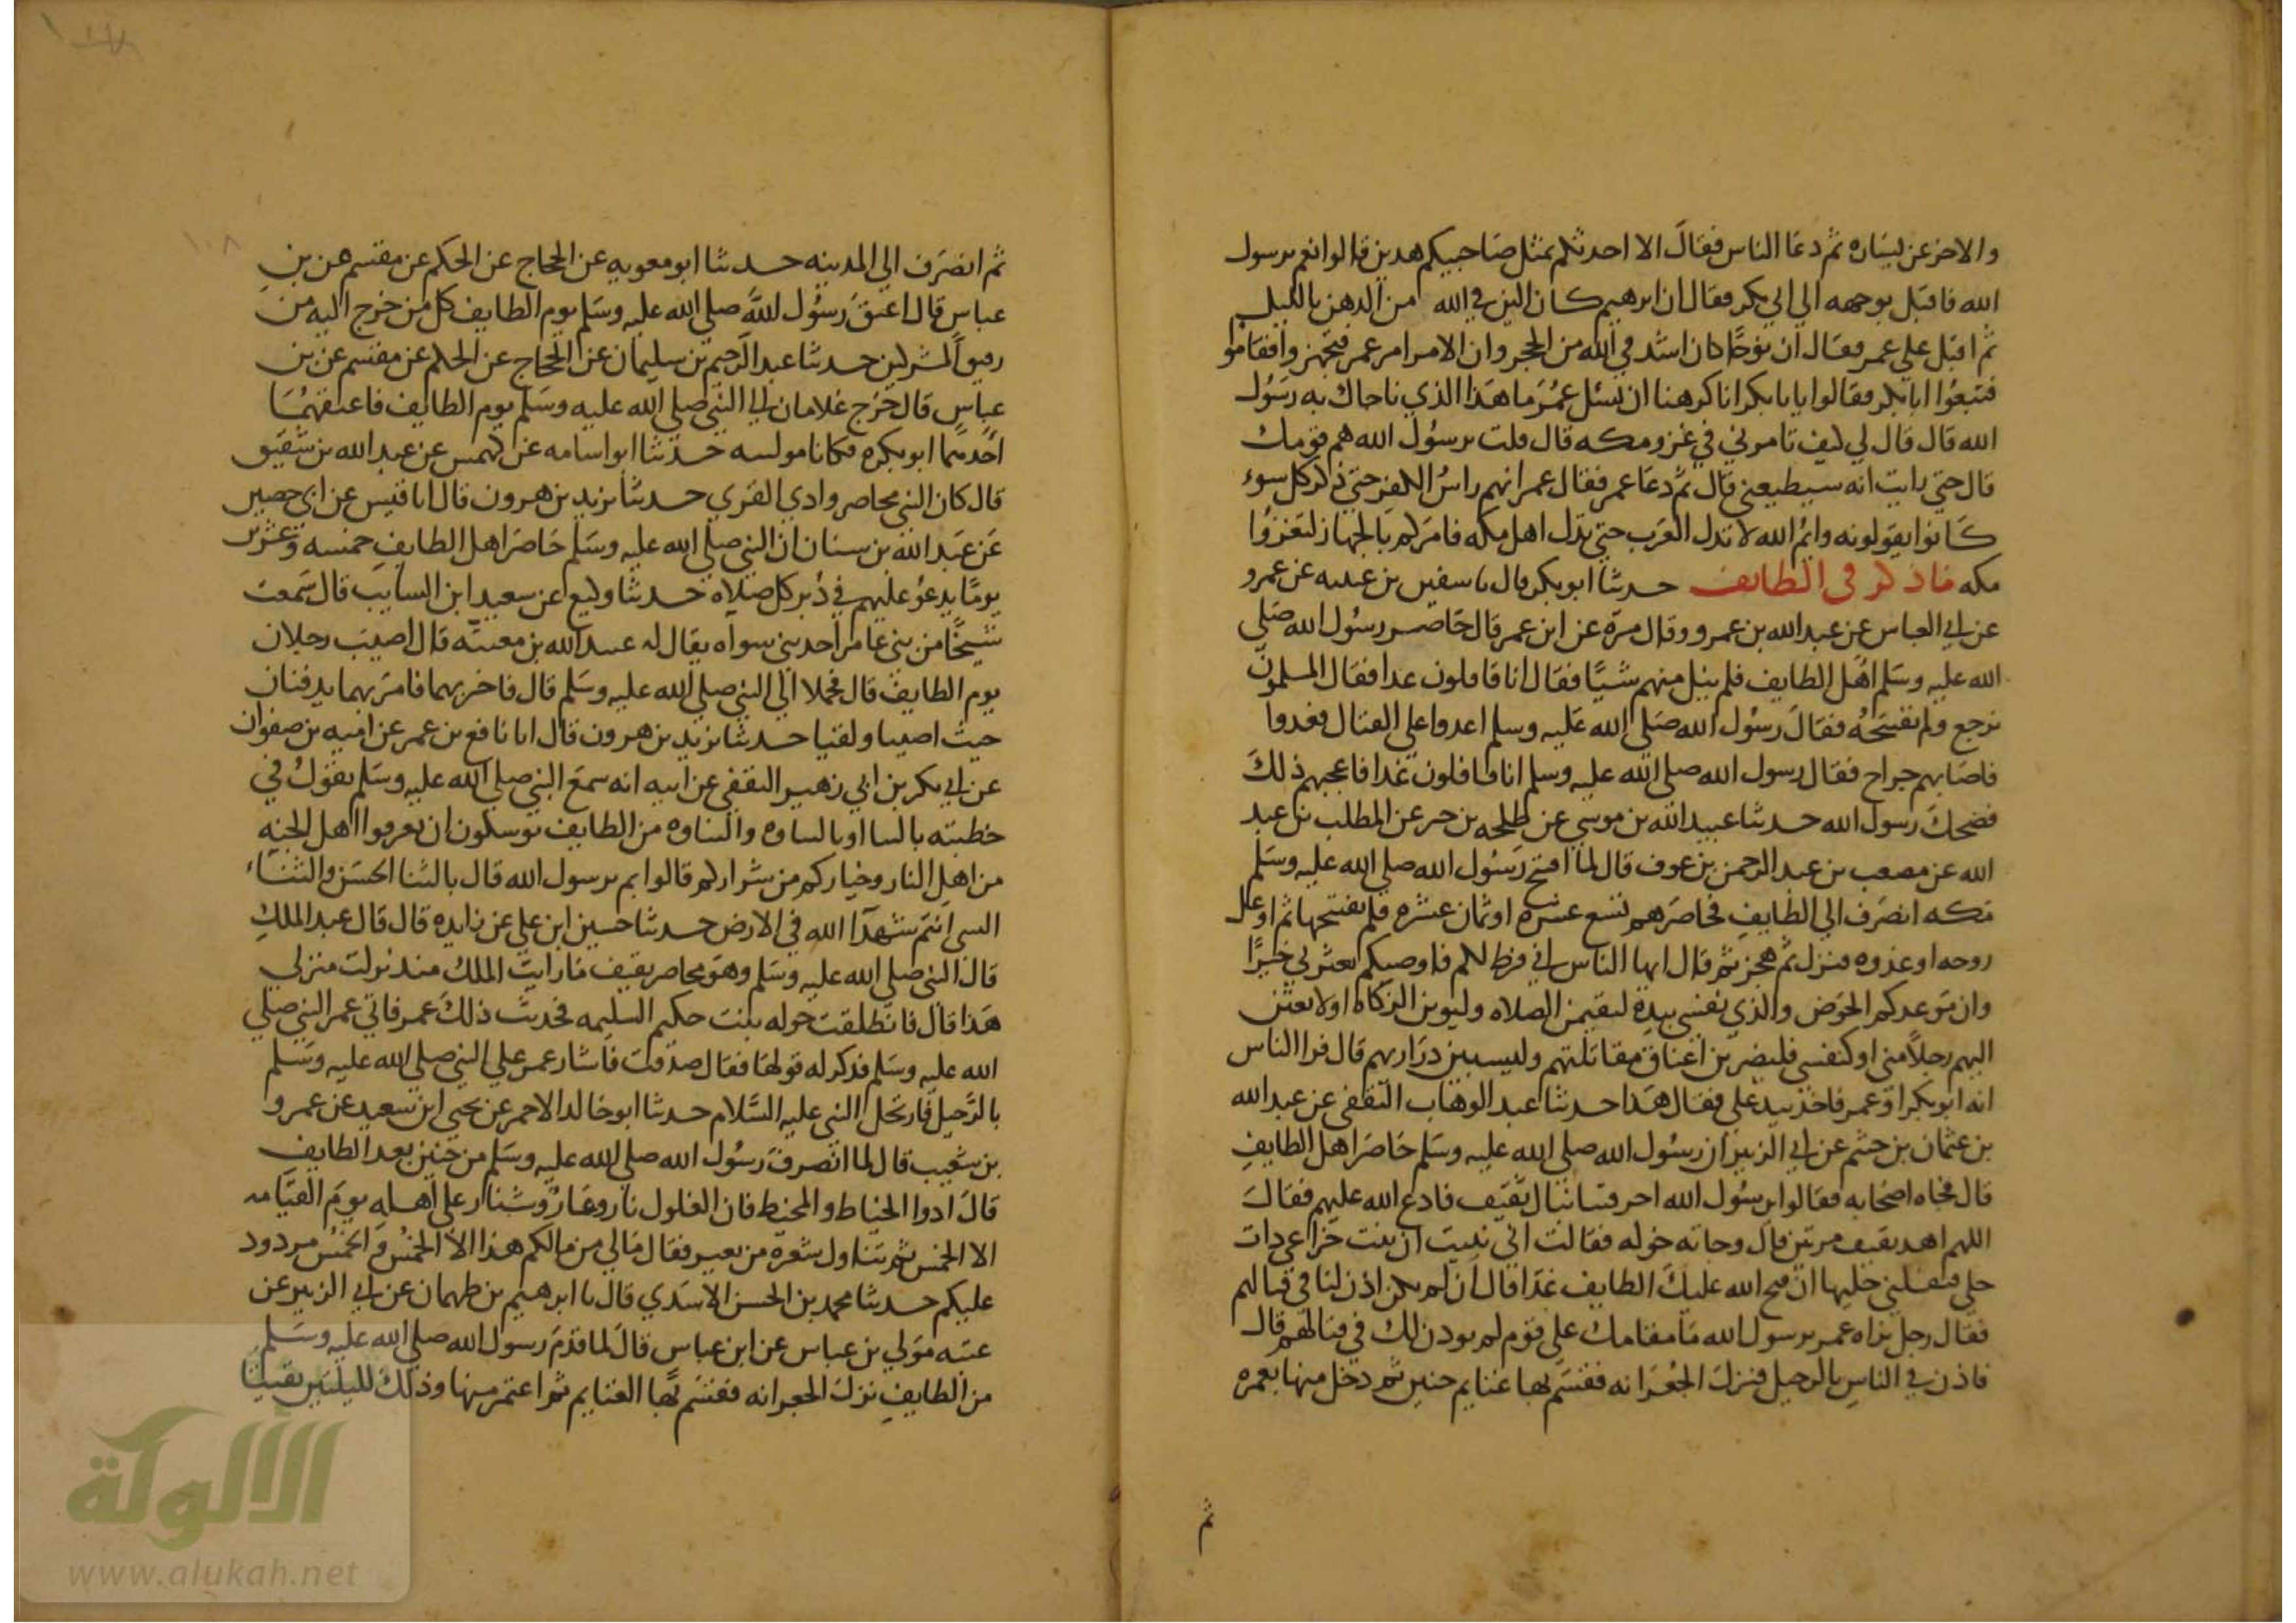 والاخر عن يساره ثم دعا الناس فقال الا احدثكم بمثل صاحبيكم هذين قالوا نعم يرسول
الله فاقبل بوجهه الي ابي بكر فقال ان ابرهيم كان الين في الله من الدهن بالليل
ثم اقبل علي عمر فقال ان نوحًا كان اشد في الله من الحجر وان الامر امر عمر فتجهزوا فقاموا
فتبعوا ابا بكر فقالوا يابا بكر انا كرهنا ان نسئل عمر ما هذا الذي ناجاك به رسول
الله قال قال لي كيف تامروني في غزو مكه قال قلت يرسول الله هم قومك
قال حتي رايت انه سيطيعني قال ثم دعا عمر فقال عمر انهم راس الكفر حتي ذكر كل سوء
كانوا يقولونه وايم الله لا تذل العرب حتي تذل اهل مكه فامركم بالجهاز لتغزوا
مكه ماذكر في الطايف حدثنا ابو بكر قال نا سفين بن عيينه عن عمرو
عن ابي العباس عن عبد الله بن عمرو وقال مرة عن ابن عمر قال حاصر رسول الله صلي
الله عليه وسلم اهل الطايف فلم ينل منهم شيًا فقال انا قافلون غدا فقال المسلمون
نرجع ولم نفتتحه فقال رسول الله صلي الله عليه وسلم اغدوا علي القتال فغدوا
فاصابهم جراح فقال رسول الله صلي الله عليه وسلم انا قافلون غدا فاعجبهم ذلك
فضحك رسول الله حدثنا عبيد الله بن موسي عن طلحه بن جبر عن المطلب بن عبد
الله عن مصعب بن عبد الرحمن بن عوف قال لما افتتح رسول الله صلي الله عليه وسلم
مكه انصرف الي الطايف فحاصرهم تسع عشره او ثمان عشره فلم يفتتحها ثم اوغل
روحه او غدوه فنزل ثم هجر ثم قال ايها الناس اني فرط لكم فاوصيكم بعترتي خيرًا
وان موعدكم الحوض والذي نفسي بيده ليقيمن الصلاه وليوتن الزكاه او لابعثن
اليهم رجلًا مني او كنفسي فليضربن اعناق مقاتلتهم وليسبين ذراريهم قال فرا الناس
انه ابو بكر او عمر فاخذ بيد علي فقال هذا حدثنا عبد الوهاب الثقفي عن عبد الله
بن عثمان بن خثيم عن ابي الزبير ان رسول الله صلي الله عليه وسلم حاصر اهل الطايف
قال فجاه اصحابه فقالوا يرسول الله احرقتنا نبال ثقيف فادع الله عليهم فقال
اللهم اهد ثقيف مرتين قال وجاته خوله فقالت اني نبيت ان بنت خزاعي ذات
حلي فنفلني حليها ان فتح الله عليك الطايف غدا قال ان لم يكن اذن لنا في قتالهم
فقال رجل نراه عمر يرسول الله ما مقامك علي قوم لم يوذن لك في قتالهم قال
فاذن في الناس بالرحيل فنزل الجعرانه فقسم بها غنايم حنين ثم دخل منها بعمره
ثم
ثم انصرف الي المدينه حدثنا ابو معويه عن الحجاج عن الحكم عن مقسم عن بن
عباس قال اعتق رسول الله صلي الله عليه وسلم يوم الطايف كل من خرج اليه من
رقيق المشركين حدثنا عبد الرحيم بن سليمان عن الحجاج عن الحكم عن مقسم عن بن
عباس قال خرج غلامان الي النبي صلي الله عليه وسلم يوم الطايف فاعتقهما
احدهما ابو بكره فكانا مولييه حدثنا ابو اسامه عن كهمس عن عبد الله بن شقيق
قال كان النبي محاصر وادي القري حدثنا يزيد بن هرون قال انا قيس عن ابي حصين
عن عبد الله بن سنان ان النبي صلي الله عليه وسلم حاصر اهل الطايف خمسه وعشرين
يومًا يدعو عليهم في دبر كل صلاه حدثنا وكيع عن سعيد ابن السايب قال سمعت
شيخًا من بني عامر احد بني سواه يقال له عبيد الله بن معيه قال اصيب رجلان
يوم الطايف قال فحملا الي النبي صلي الله عليه وسلم قال فاخبر بهما فامر بهما يدفنان
حيث اصيبا ولقيا حدثنا يزيد بن هرون قال انا نافع بن عمر عن اميه بن صفوان
عن ابي بكر بن ابي زهير الثقفي عن ابيه انه سمع النبي صلي الله عليه وسلم يقول في
خطبته بالنبا او بالنباوه والنباوه من الطايف توشكون ان تعرفوا اهل الجنه
من اهل النار وخياركم من شراركم قالوا بم يرسول الله قال بالثنا الحسن والثناء
السي انتم شهدآ الله في الارض حدثنا حسين ابن علي عن زايده قال قال عبد الملك
قال النبي صلي الله عليه وسلم وهو محاصر ثقيف ما رايت الملك منذ نزلت منزلي
هذا قال فانطلقت خوله بنت حكيم السليمه فحدثت ذلك عمر فاتي عمر النبي صلي
الله عليه وسلم فذكر له قولها فقال صدقت فاشار عمر علي النبي صلي الله عليه وسلم
بالرحيل فارتحل النبي عليه السلام حدثنا ابو خالد الاحمر عن يحيي ابن سعيد عن عمرو
بن شعيب قال لما انصرف رسول الله صلي الله عليه وسلم من حنين بعد الطايف
قال ادوا الخياط والمخيط فان الغلول نار وعار وشنار علي اهله يوم القيامه
الا الخمس ثم تناول شعره من بعير فقال مالي من مالكم هذا الا الخمس والخمس مردود
عليكم حدثنا محمد بن الحسن الاسدي قال نا ابرهيم بن طهمان عن ابي الزبير عن
عتبه مولي بن عباس عن ابن عباس قال لما قدم رسول الله صلي الله عليه وسلم
من الطايف نزل الجعرانه فقسم بها الغنايم ثم اعتمر منها وذلك لليلتين بقيتا
١٠٨
الألوكة
www.alukah.net